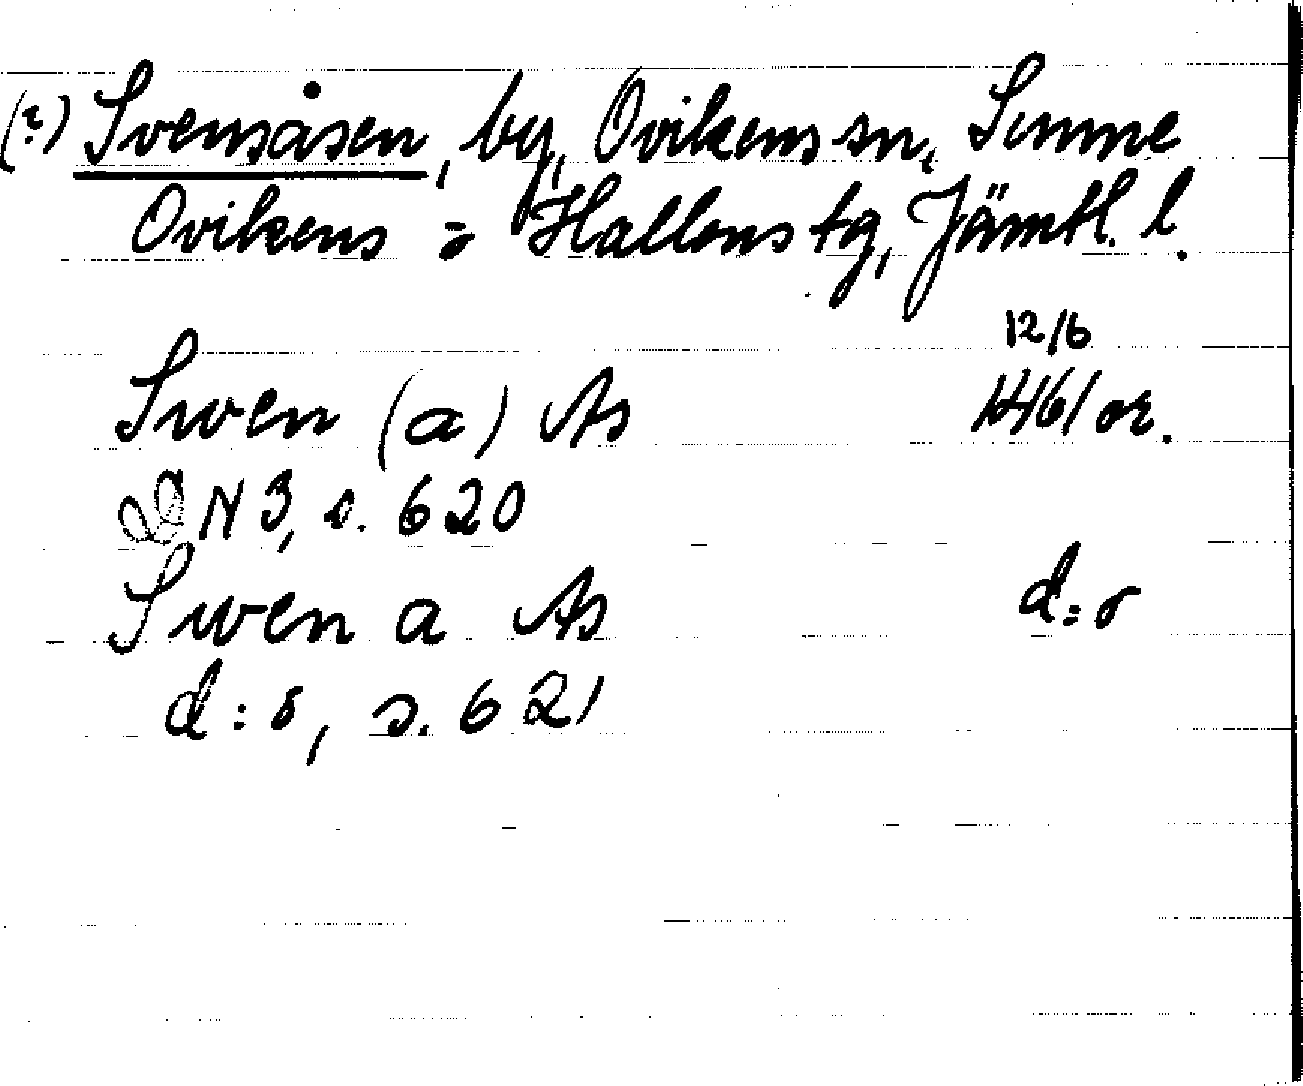 (?) Svensåsen, by, Ovikens sn, Sunne
Ovikens o Hallens tg, Jämtl. l.
12/6
Swen (a) As 1461 or.
N 3, s. 620
Swen a As d:o
d:o, s. 621